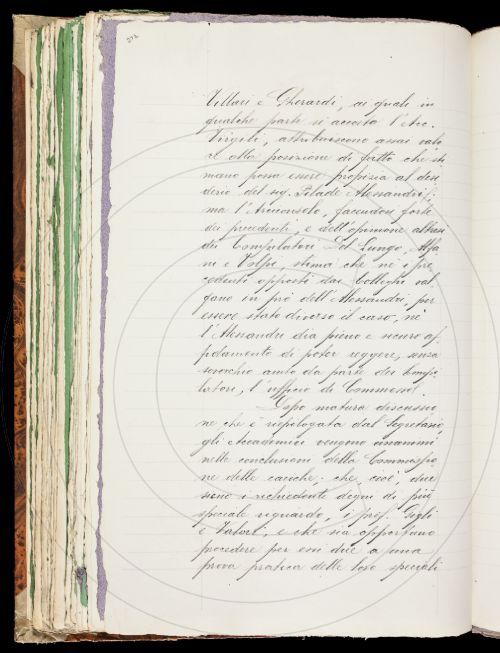 Villari e Gherardi, ai quali in
qualche parte si accosta l'Arc.
Virgili, attribuiscono assai valo
re alla posizione di fatto che sti
mano possa essere propizia al desi
derio del sig. Pilade Alessandri;
ma l'Arciconsolo, facendosi forte
dei precedenti, e dell'opinione altresì
dei Compilatori Del Lungo, Alfa
ni e Volpi, stima che nè i pre
cedenti opposti dai Colleghi val
gano in prò dell'Alessandri, per
essere stato diverso il caso, nè
l'Alessandri dia pieno e sicuro af
fidamento di poter reggere, senza
soverchio aiuto da parte dei Compi
latori, l'ufficio di Commesso.
Dopo matura discussio
ne che è riepilogata dal Segretario,
gli Accademici vengono unanimi
nelle conclusioni della Commissio
ne delle cariche; che, cioè, due
siano i richiedenti degni di più
speciale riguardo, i prof.
e che sia opportuno
procedere per essi due a una
prova pratica delle loro speciali